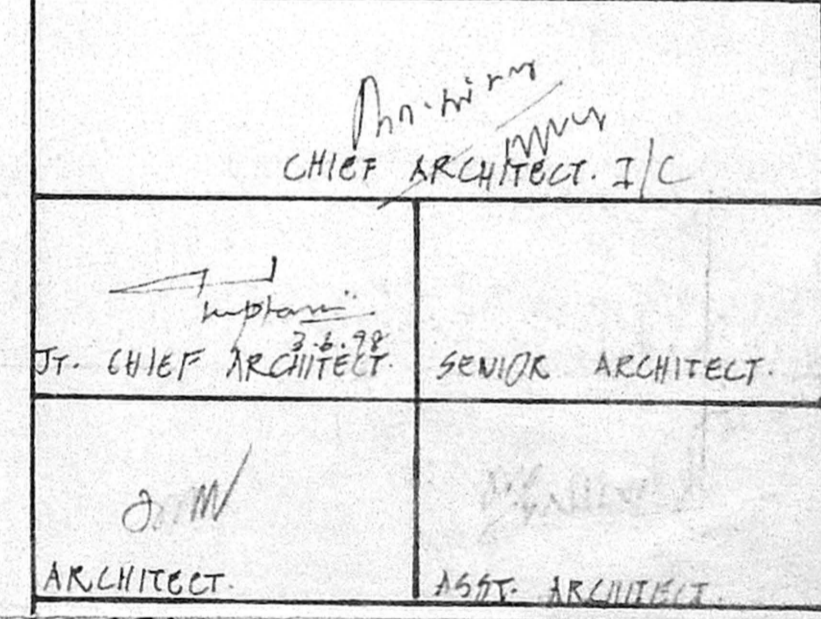 CHIEF ARCHITECT. I/C
3.6.98
JT. CHIEF ARCHITECT.
SENIOR ARCHITECT.
ARCHITECT.
ASST. ARCHITECT.